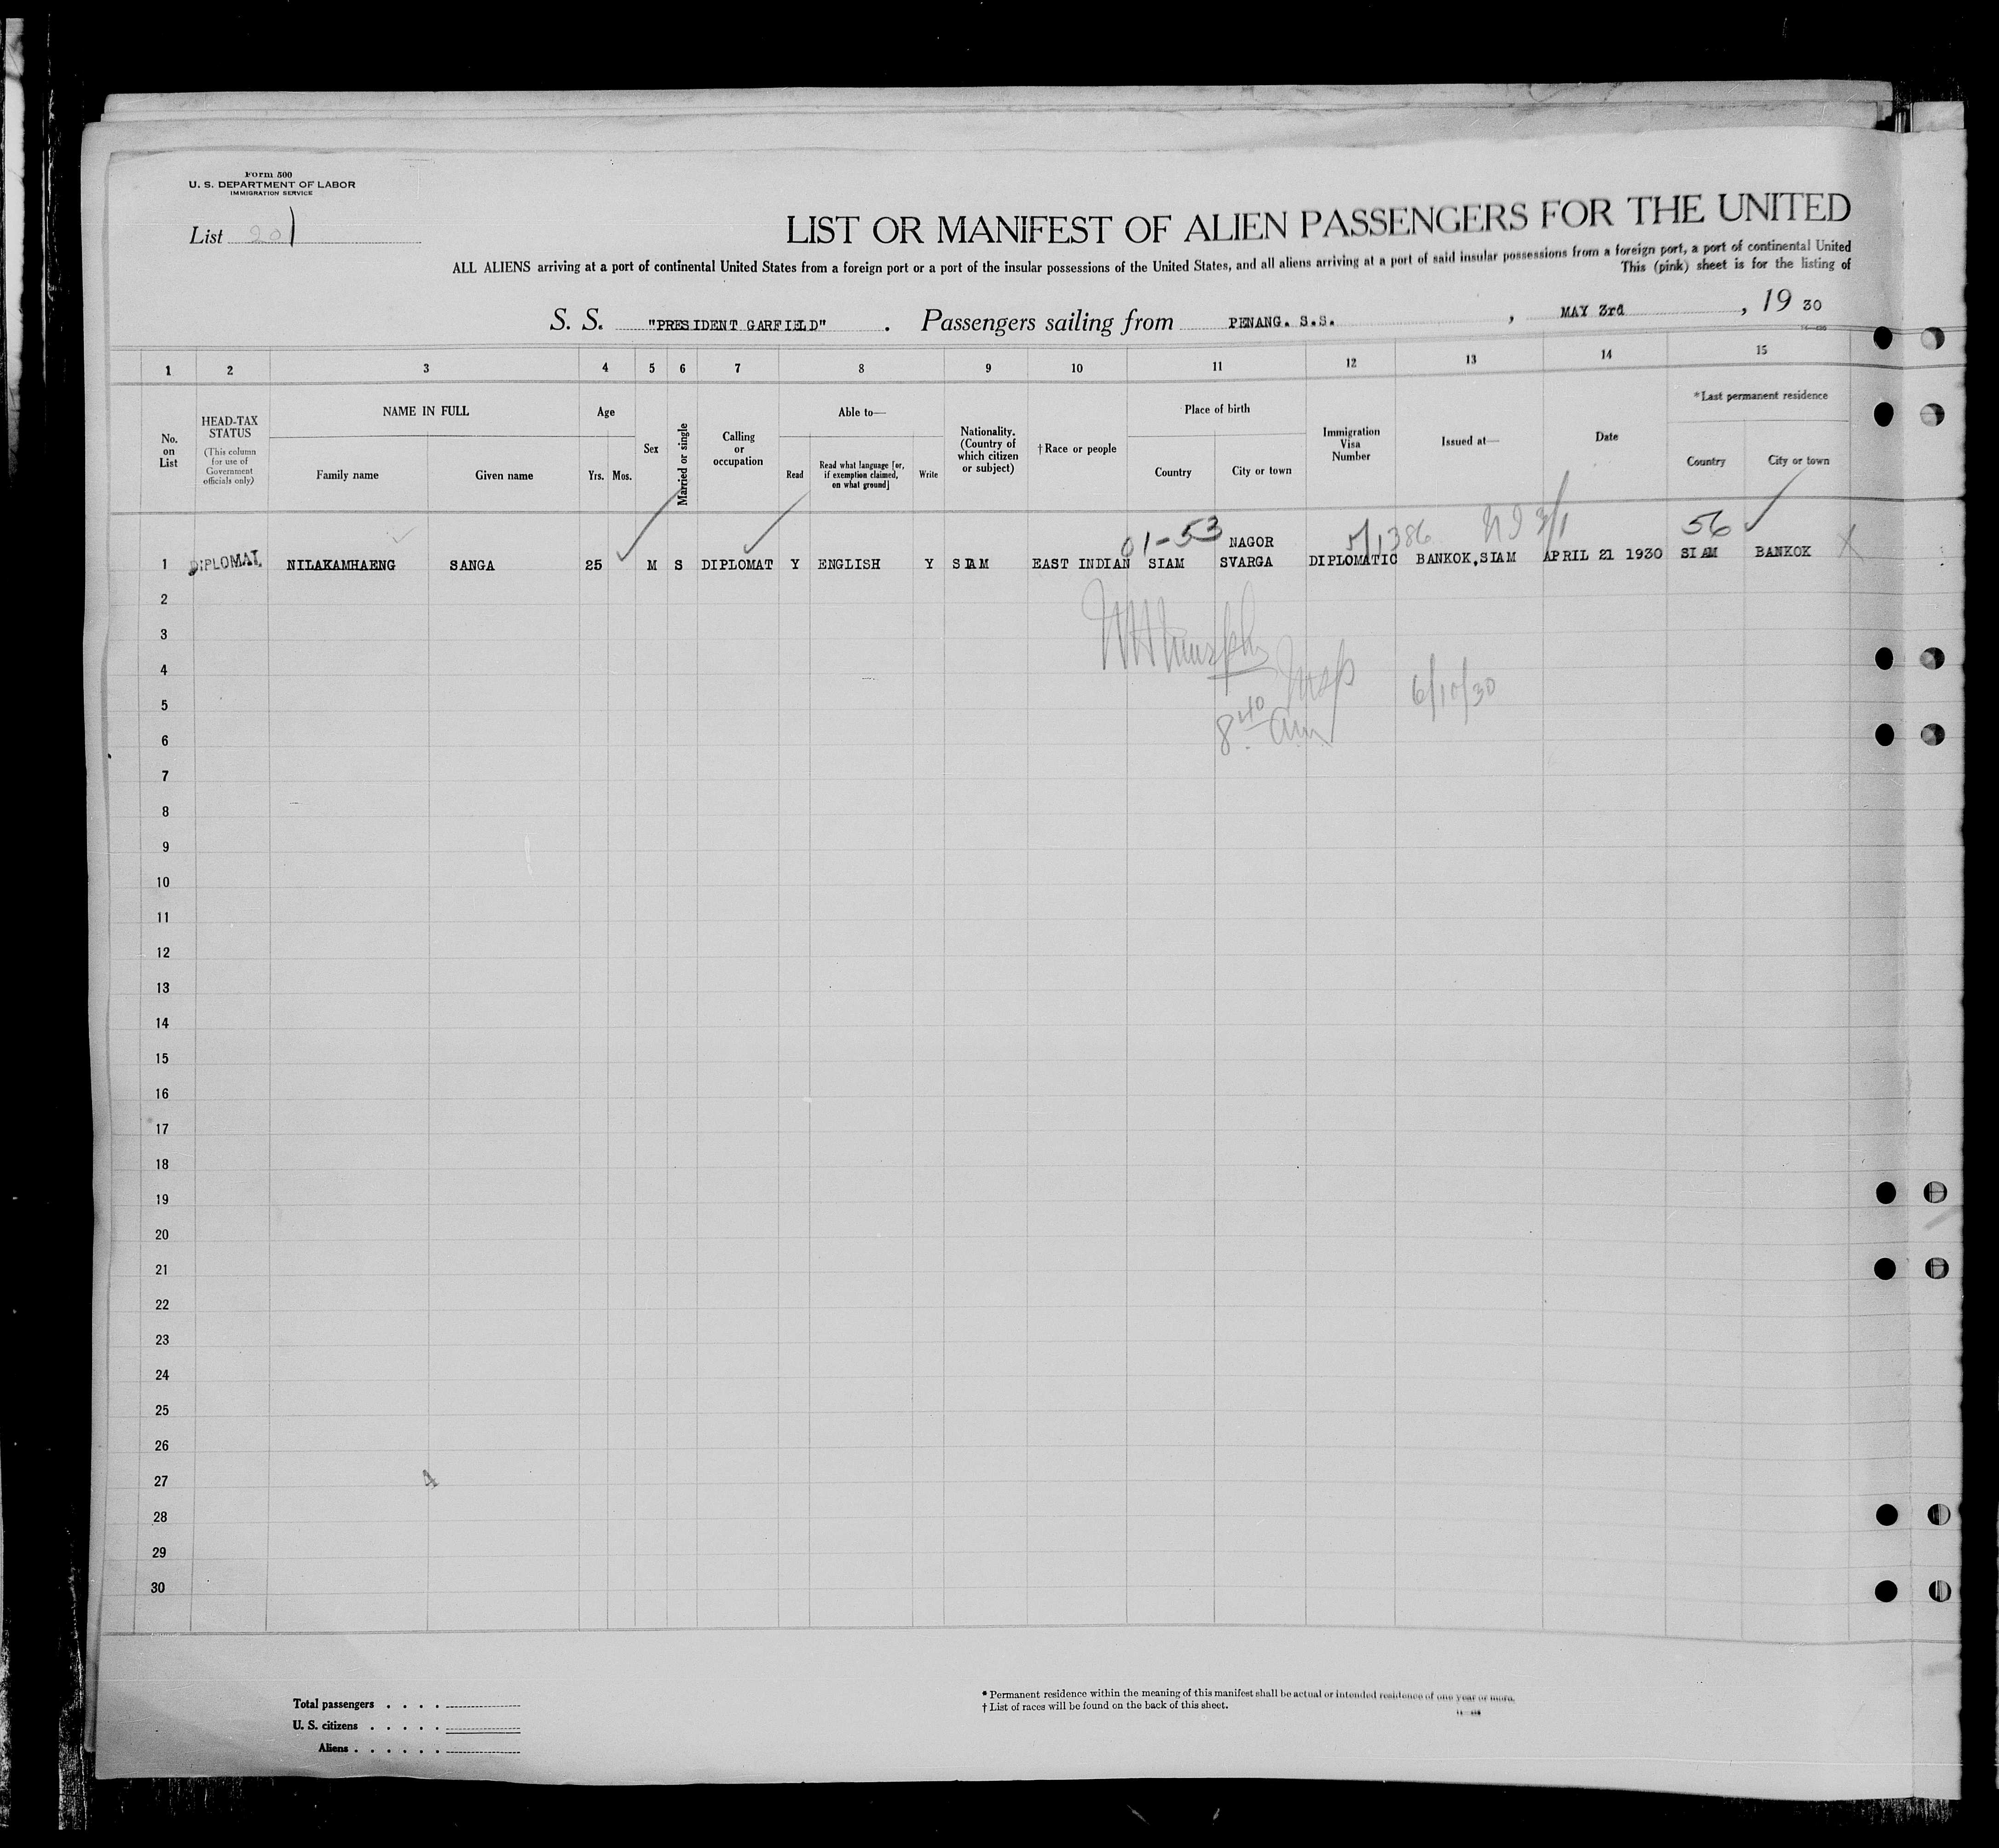 Form 500
U. S. DEPARTMENT OF LABOR
IMMIGRATION SERVICE
List 201
LIST OR MANIFEST OF ALIEN PASSENGERS FOR THE UNITED
ALL ALIENS arriving at a port of continental United States from a foreign port or a port of the insular possessions of the United States, and all aliens arriving at a port of said insular possessions from a foreign port, a port of continental United
This (pink) sheet is for the listing of
S. S. "PRESIDENT GARFIELD" . Passengers sailing from PENANG. S.S. , MAY 3rd , 19 30
1 2 3 4 5 6 7 8 9 10 11 12 13 14 15
No. on List
HEAD-TAX STATUS
(This column for use of Government officials only)
NAME IN FULL
Family name Given name
Age
Yrs. Mos.
Sex
Married or single
Calling or occupation
Able to—
Read
Read what language [or, if exemption claimed, on what ground]
Write
Nationality. (Country of which citizen or subject)
† Race or people
Place of birth
Country City or town
Immigration Visa Number
Issued at—
Date
* Last permanent residence
Country City or town
01-53 NAGOR 56
1 DIPLOMAT NILAKAMHAENG SANGA 25 M S DIPLOMAT Y ENGLISH Y SIAM EAST INDIAN SIAM SVARGA DIPLOMATIC BANKOK,SIAM APRIL 21 1930 SIAM BANKOK X
2
3
4
5
6/10/30
8 40 am
6
7
8
9
10
11
12
13
14
15
16
17
18
19
20
21
22
23
24
25
26
27
4
28
29
30
Total passengers . . . .
U. S. citizens . . . . .
Aliens . . . . . .
* Permanent residence within the meaning of this manifest shall be actual or intended residence of one year or more.
† List of races will be found on the back of this sheet.